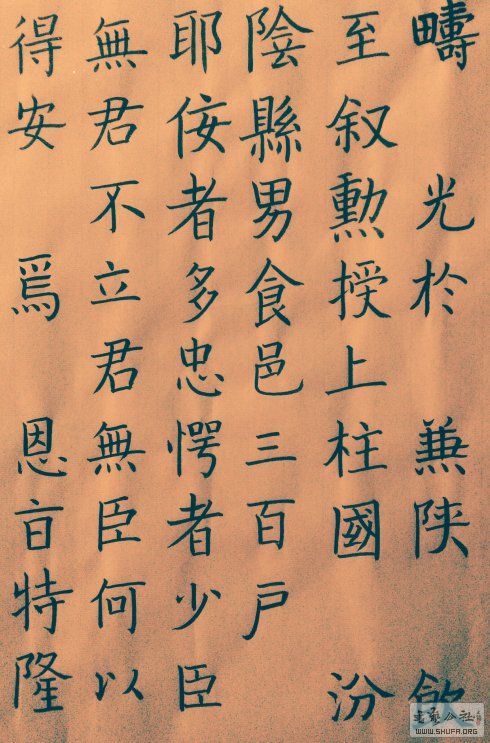 疇 光於 兼陝
至叙勲授上柱國 汾
陰縣男食邑三百戶
耶佞者多忠愕者少臣
無君不立君無臣何以
得安 焉 恩旨特隆
書藝公社
WWW.SHUFA.ORG